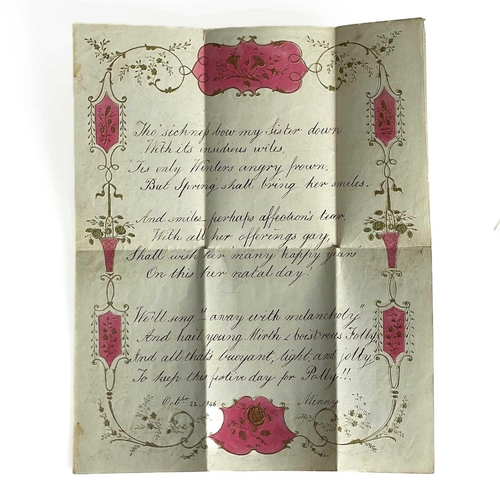 Tho' sickness bow my Sister down
With its insidious wiles,
'Tis only Winters angry frown,
But Spring shall bring her smiles.
And smiles perhaps affection's tear,
With all her offerings gay,
Shall wish her many happy years
On this her natal day!
We'll sing "away with melancholy"
And hail young Mirth & boist'rous Folly,
And all that's buoyant, light, and jolly
To keep this festive day for Polly!!.
Octbr 22, 1846 Minny